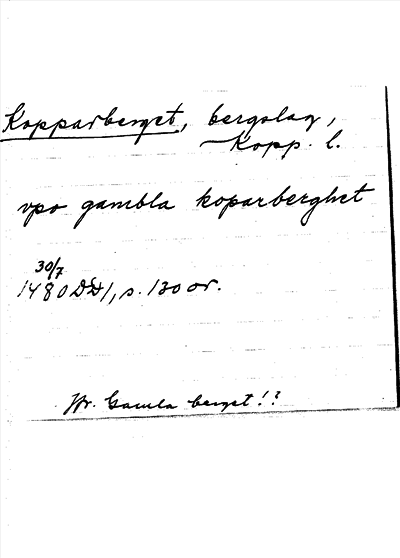 Kopparberget, bergslag,
Kopp. l.
vpo gambla koparberghet
30/7
1480 DD 1, s. 130 or.
Jfr. Gamla berget!?